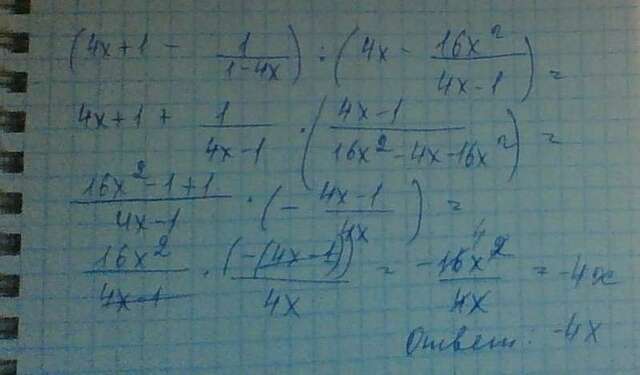 (4x+1 - 1/(1-4x)) : (4x - 16x²/(4x-1)) =
4x+1 + 1/(4x-1) · ((4x-1)/(16x²-4x-16x²)) =
(16x²-1+1)/(4x-1) · (- (4x-1)/(4x)) =
16x²/(4x-1) · (-(4x-1))/(4x) = -16x²/(4x) 4 = -4x
Ответ: -4x